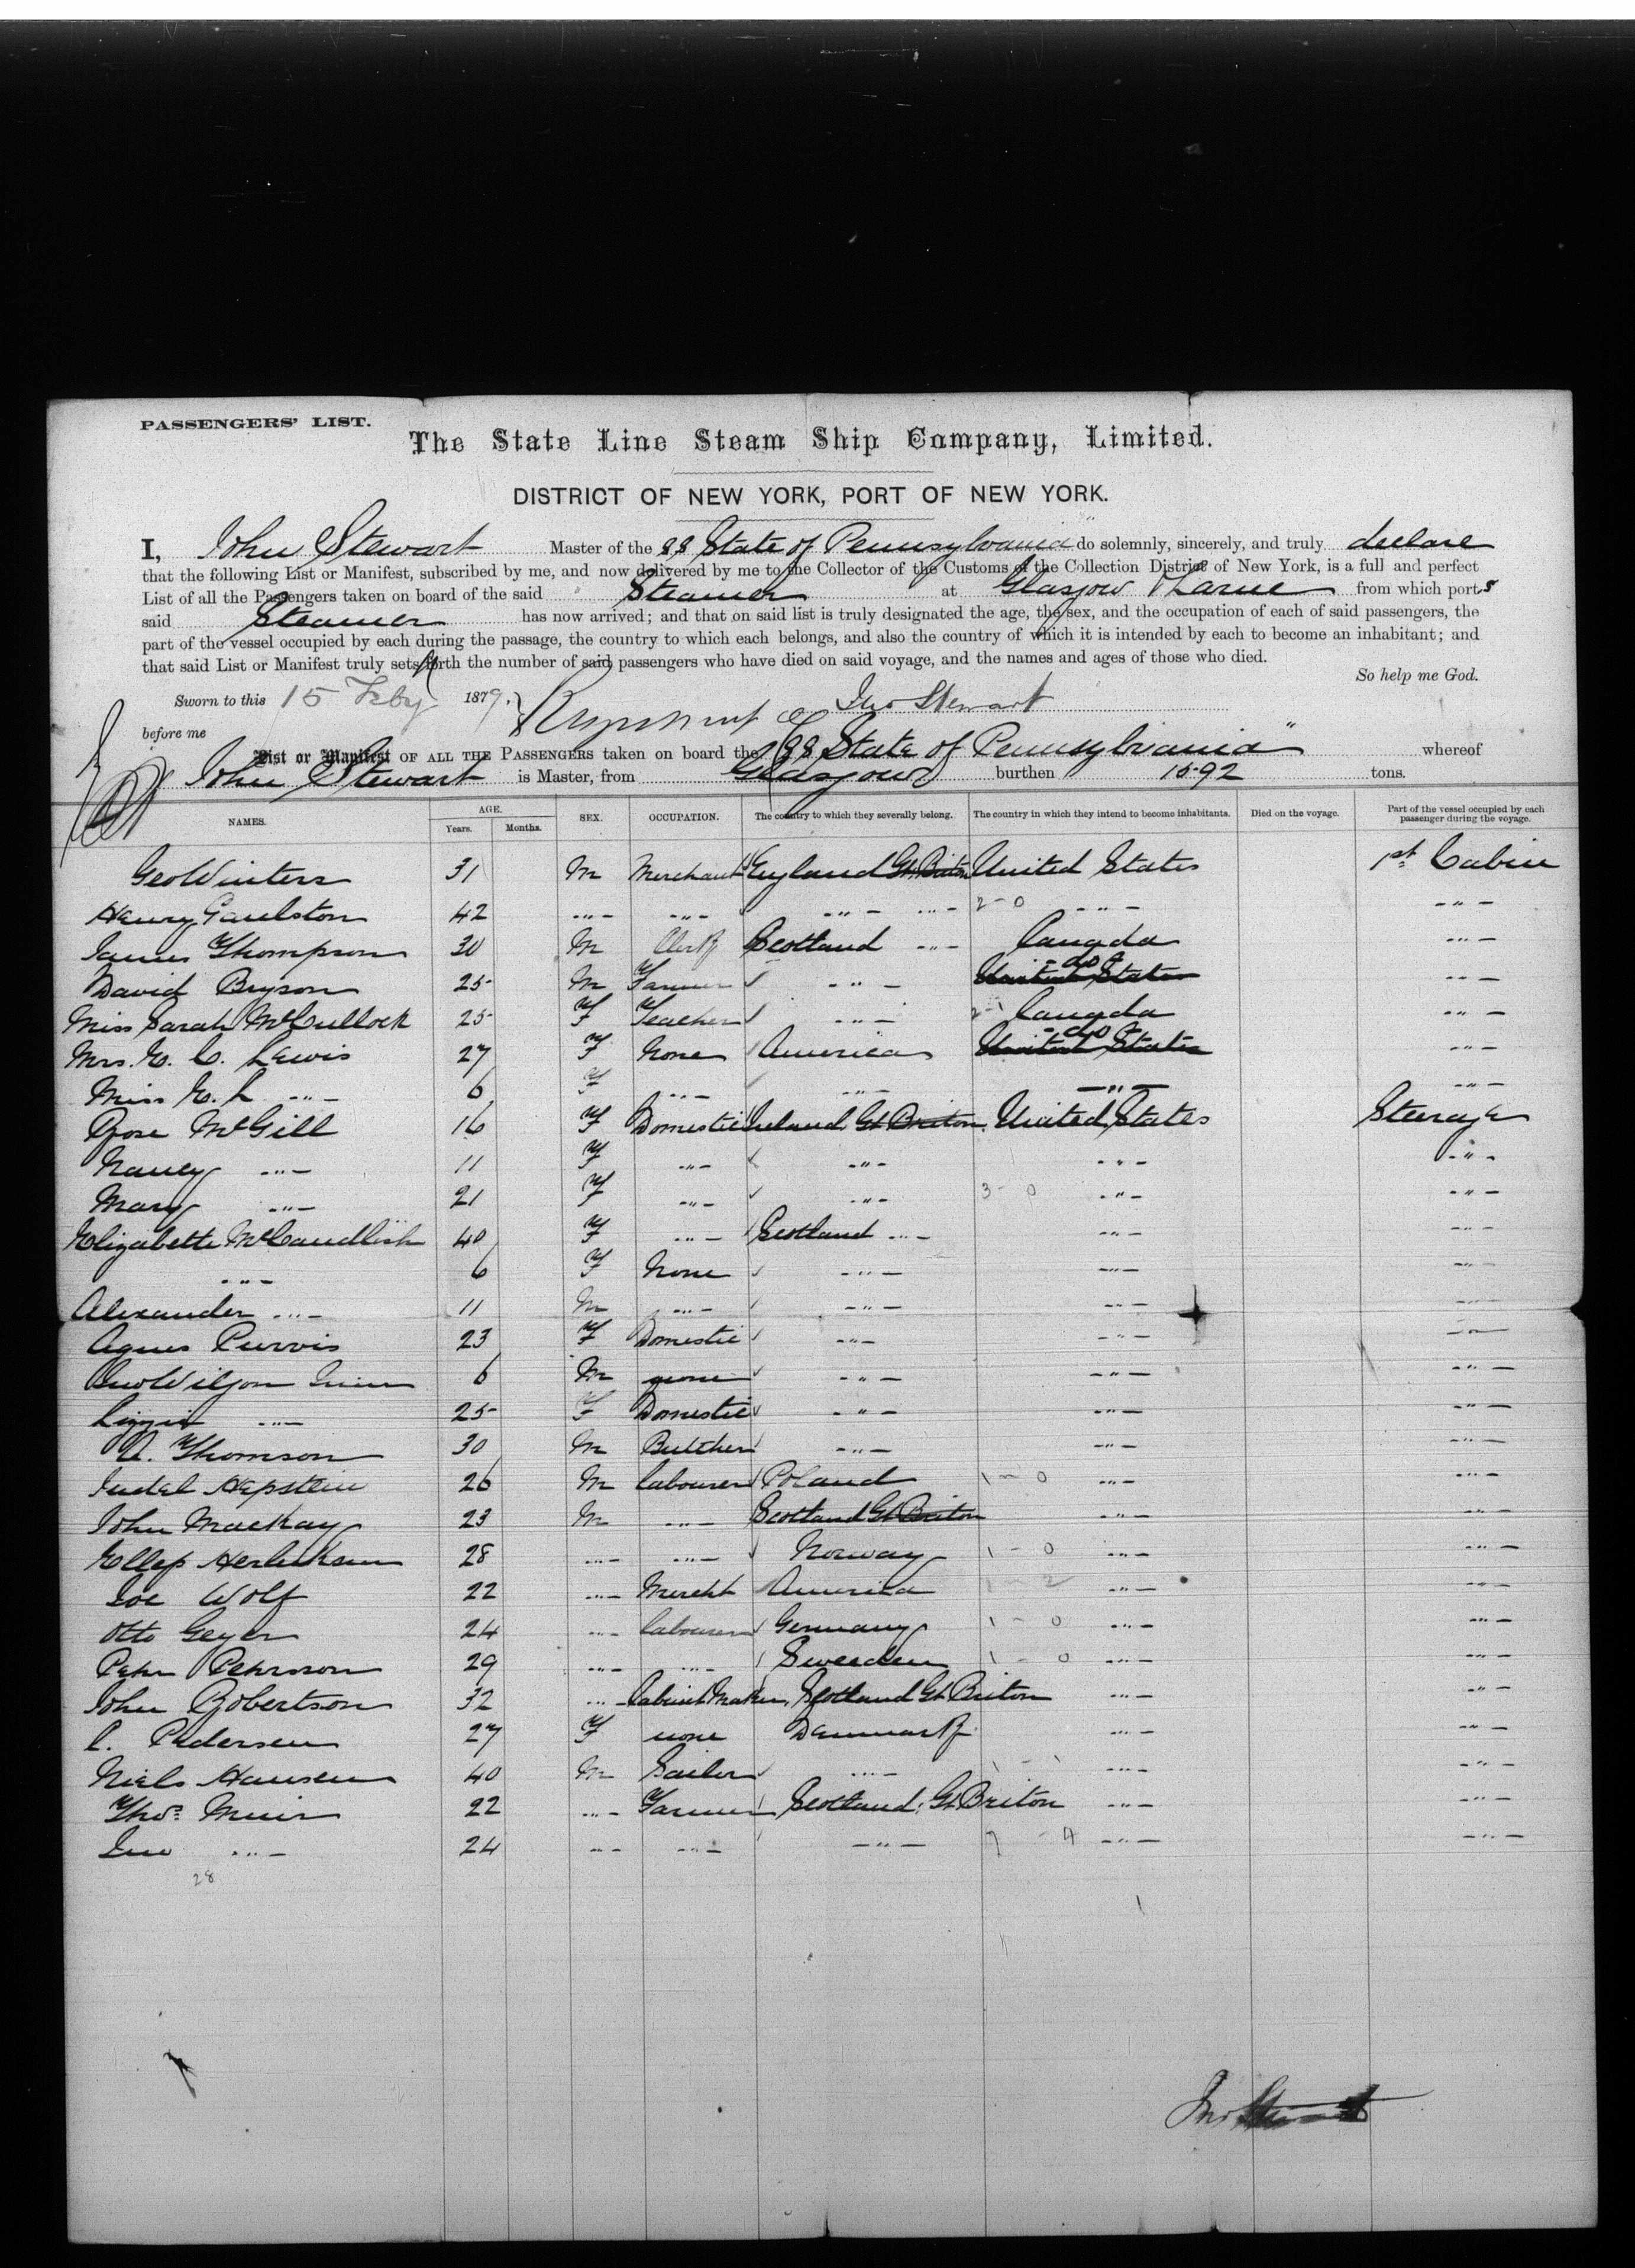 PASSENGERS' LIST.
The State Line Steam Ship Company, Limited.
DISTRICT OF NEW YORK, PORT OF NEW YORK.
I, John Stewart Master of the SS State of Pennsylvania do solemnly, sincerely, and truly declare
that the following List or Manifest, subscribed by me, and now delivered by me to the Collector of the Customs of the Collection District of New York, is a full and perfect
List of all the Passengers taken on board of the said Steamer at Glasgow & Larne from which ports
said Steamer has now arrived; and that on said list is truly designated the age, the sex, and the occupation of each of said passengers, the
part of the vessel occupied by each during the passage, the country to which each belongs, and also the country of which it is intended by each to become an inhabitant; and
that said List or Manifest truly sets forth the number of said passengers who have died on said voyage, and the names and ages of those who died.
So help me God.
Sworn to this 15 Feby 1879. Jno Stewart
before me
List or Manifest OF ALL THE PASSENGERS taken on board the SS State of Pennsylvania" whereof
John Stewart is Master, from Glasgow burthen 1592 tons.
NAMES. AGE. Years. Months. SEX. OCCUPATION. The country to which they severally belong. The country in which they intend to become inhabitants. Died on the voyage. Part of the vessel occupied by each passenger during the voyage.
Geo Winters 31 M Merchant England Gt. Briton United States 1st Cabin
Henry Gaulston 42 -"- -"- -"- -"- 2-0 -"- -"-
James Thompson 30 M Clerk Scotland -"- Canada -"-
David Bryson 25 M Farmer -"- United States do -"-
Miss Sarah McCullock 25 F Teacher -"- 2-1 Canada -"-
Mrs. E. C. Lewis 27 F None America United States do -"-
Miss E. L -"- 6 F -"- -"- -"- -"-
Rose McGill 16 F Domestic Ireland Gt Briton United States Steerage
Nancy -"- 11 F -"- -"- -"- -"-
Mary -"- 21 F -"- -"- 3-0 -"- -"-
Elizabeth McCandlish 40 F -"- Scotland -"- -"- -"-
-"- 6 F None -"- -"- -"-
Alexander -"- 11 M -"- -"- -"- -"-
Agnes Purvis 23 F Domestic -"- -"- -"-
Jno Wilson 6 M none -"- -"- -"-
Lizzie -"- 25 F Domestic -"- -"- -"-
A. Thomson 30 M Butcher -"- -"- -"-
Judel Hepstein 26 M labourer Poland 1-0 -"- -"-
John Mackay 23 M -"- Scotland Gt Briton -"- -"-
28 -"- -"- Norway 1-0 -"- -"-
Joe Wolf 22 -"- Mercht America 1-2 -"- -"-
Otto Geyer 24 -"- labourer Germany 1-0 -"- -"-
Pehr Pehrsson 29 -"- -"- Sweeden 1-0 -"- -"-
John Robertson 32 -"- Cabinet Maker Scotland Gt Briton -"- -"-
C. Pedersen 27 F none Denmark -"- -"-
Niels Hansen 40 M Sailor -"- 1-1 -"- -"-
Thos. Muir 22 -"- Farmer Scotland Gt Briton -"- -"-
Jno -"- 24 -"- -"- -"- 7-4 -"- -"-
28
Jno Stewart